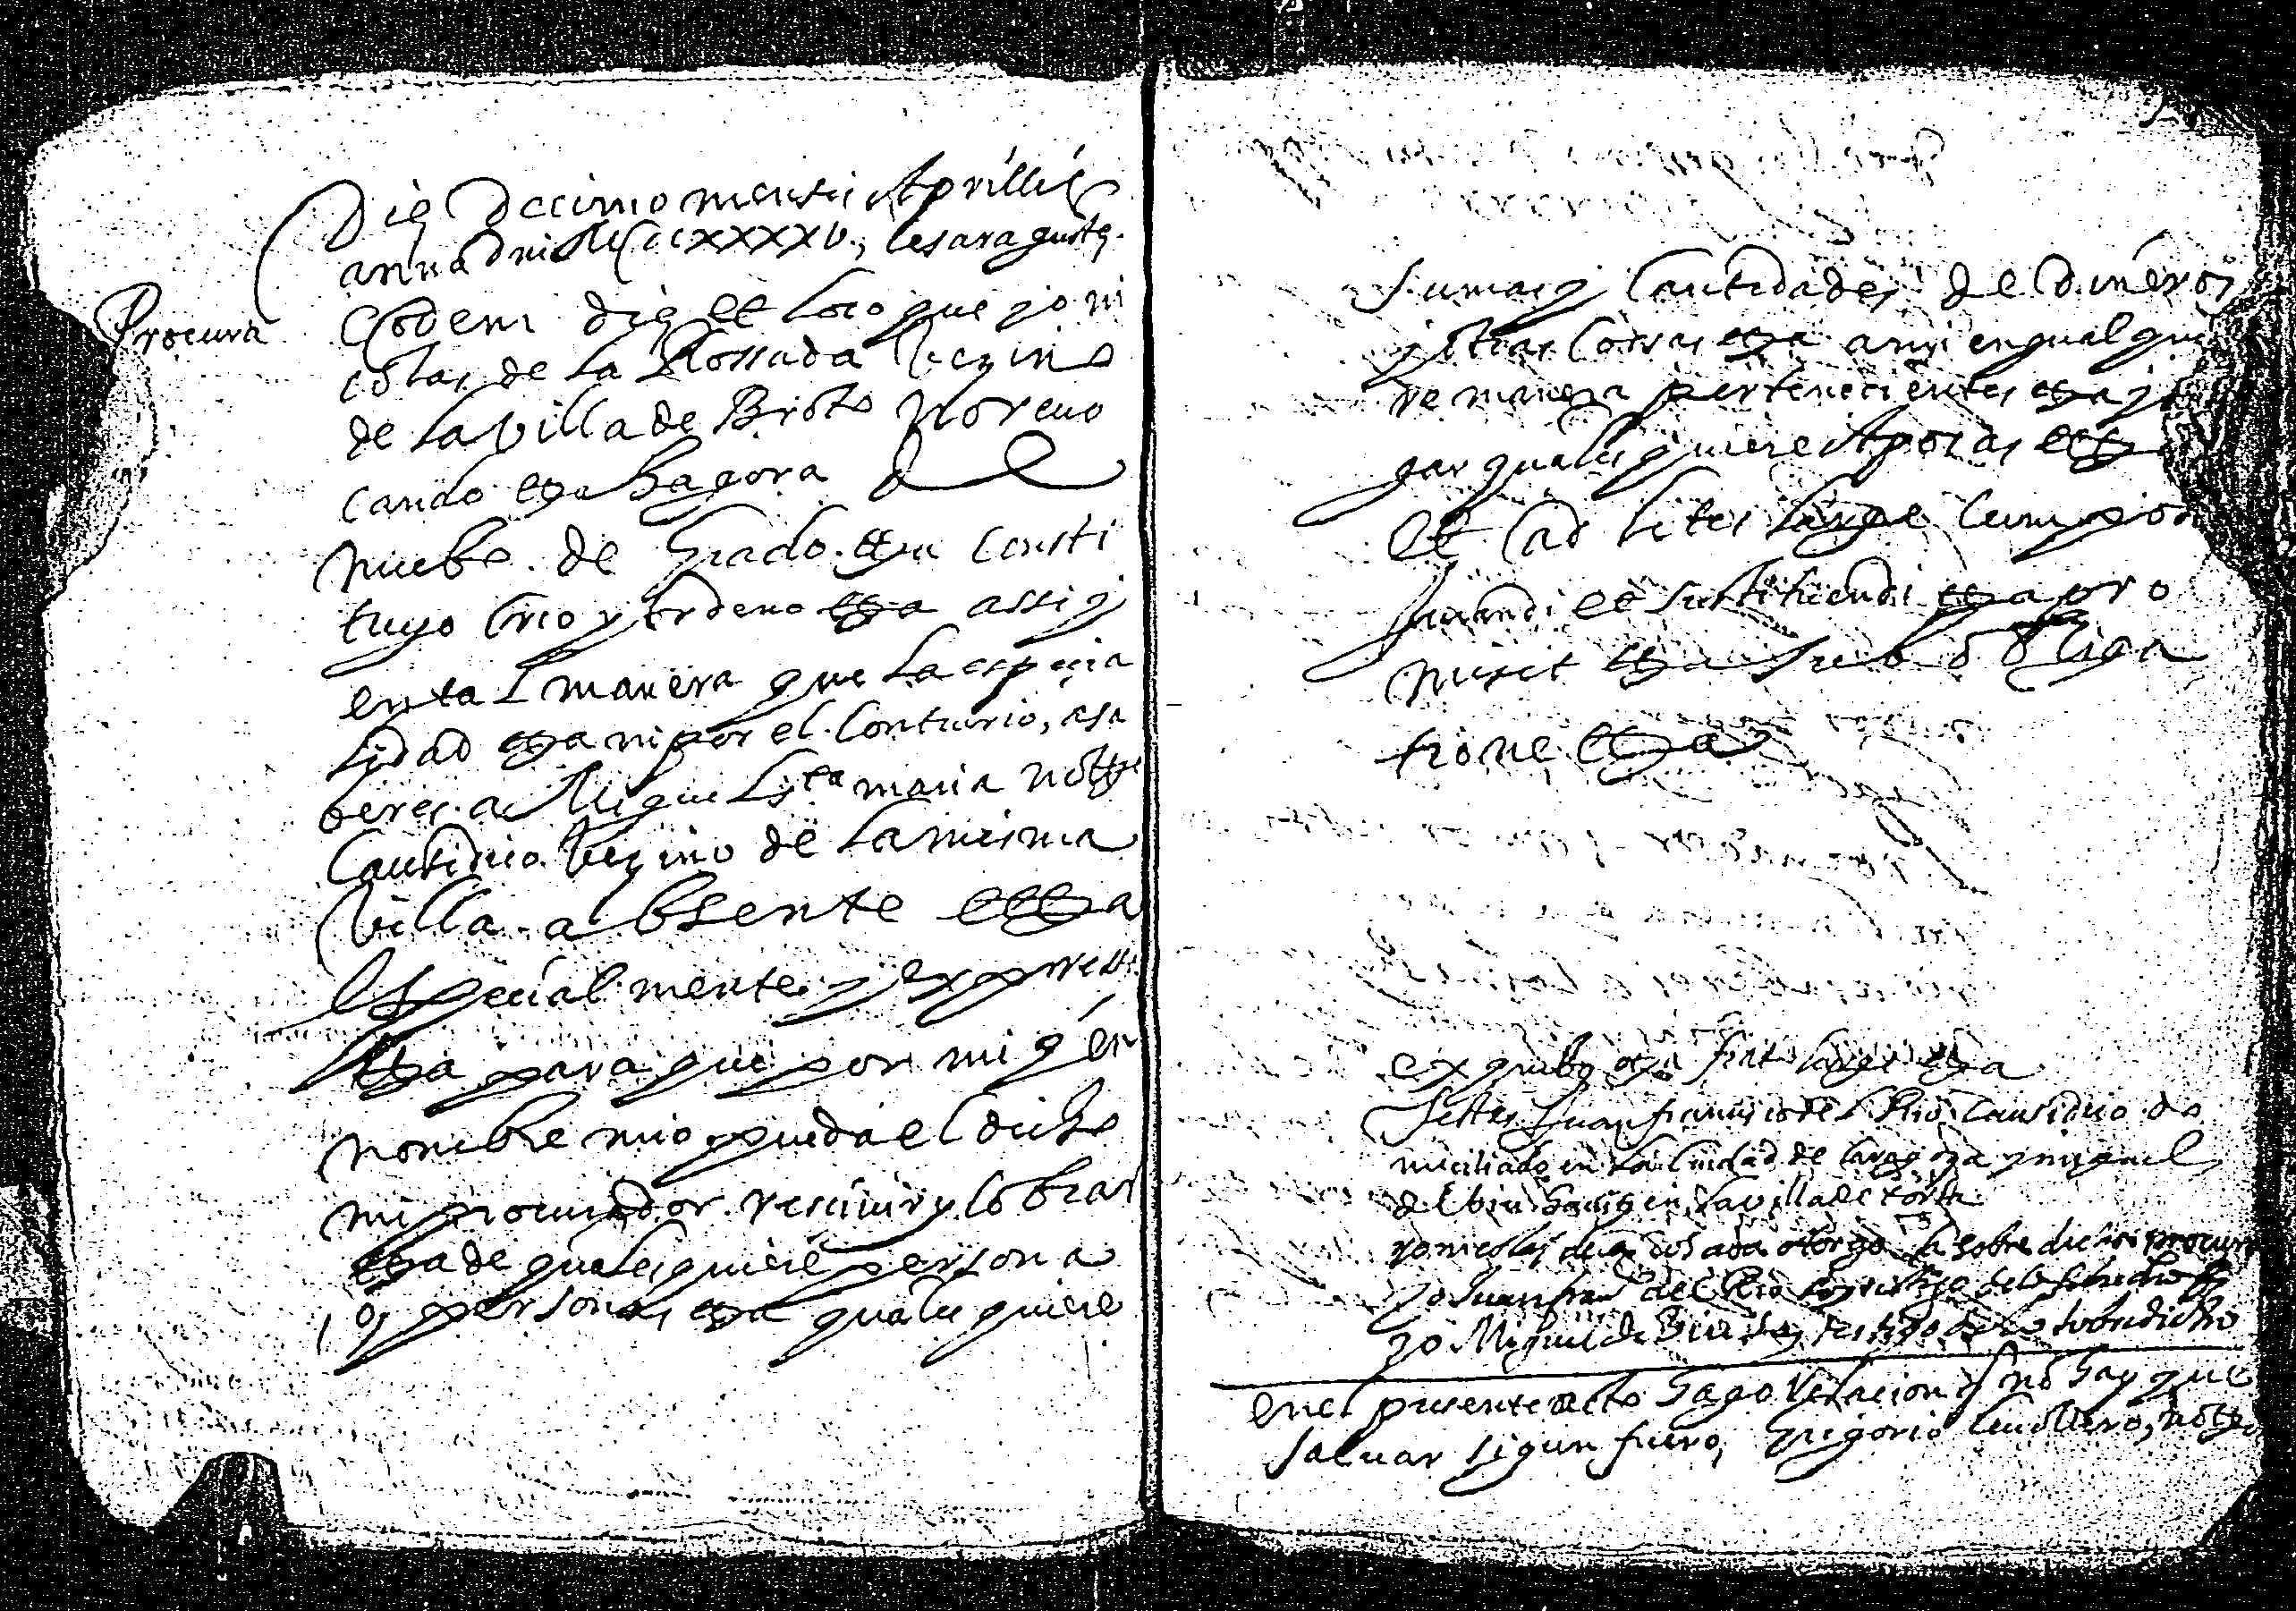 Procura
Die Decimo mensis Aprillis
anno Dni MDCCXXXXV, Cesarauguste.
Eodem die et loco que yo ni
colas de la Possada Vezino
de la Villa de Broto no revo
cando etza hagora de
nuebo de Grado etza Consti
tuyo Crio y ordeno etza assi y
en tal manera que la especia
lidad etza ni por el Conturio, asa
beres a Miguel Sta maria notto
Causidico Vezino de la misma
Villa absente etza
Especialmente y express
etza para que por mi y en
nombre mio pueda el dicho
mi procurador rescivir y cobrar
etza de qualesquiere persona
o personas etza qualesquiere
sumas y Cantidades de Dineros
y otras Cossas etza ansi en qual quie
re manera pertenecientes etza y
gar quales quiere Apocas etza
Et Cad lites large Cum po
Jurandi et sustituendi etza pro
missit etza sub obliga
tione etza
ex quibz etza fiat large etza
Testes Juan francisco del Rio Causidico do
miciliado en la Ciudad de Caragoza y miguel
de Vin en la villa de Torla
yo nicolas de la Posada otorgo lo sobre dicho procura
yo Juan fran del Rio soy testigo de lo sobredicho
yo Miguel de Biu soy testigo de lo sobredicho
en el presente acto hago Relacion y no hay que
salvar sigun fuero, Grigorio notto